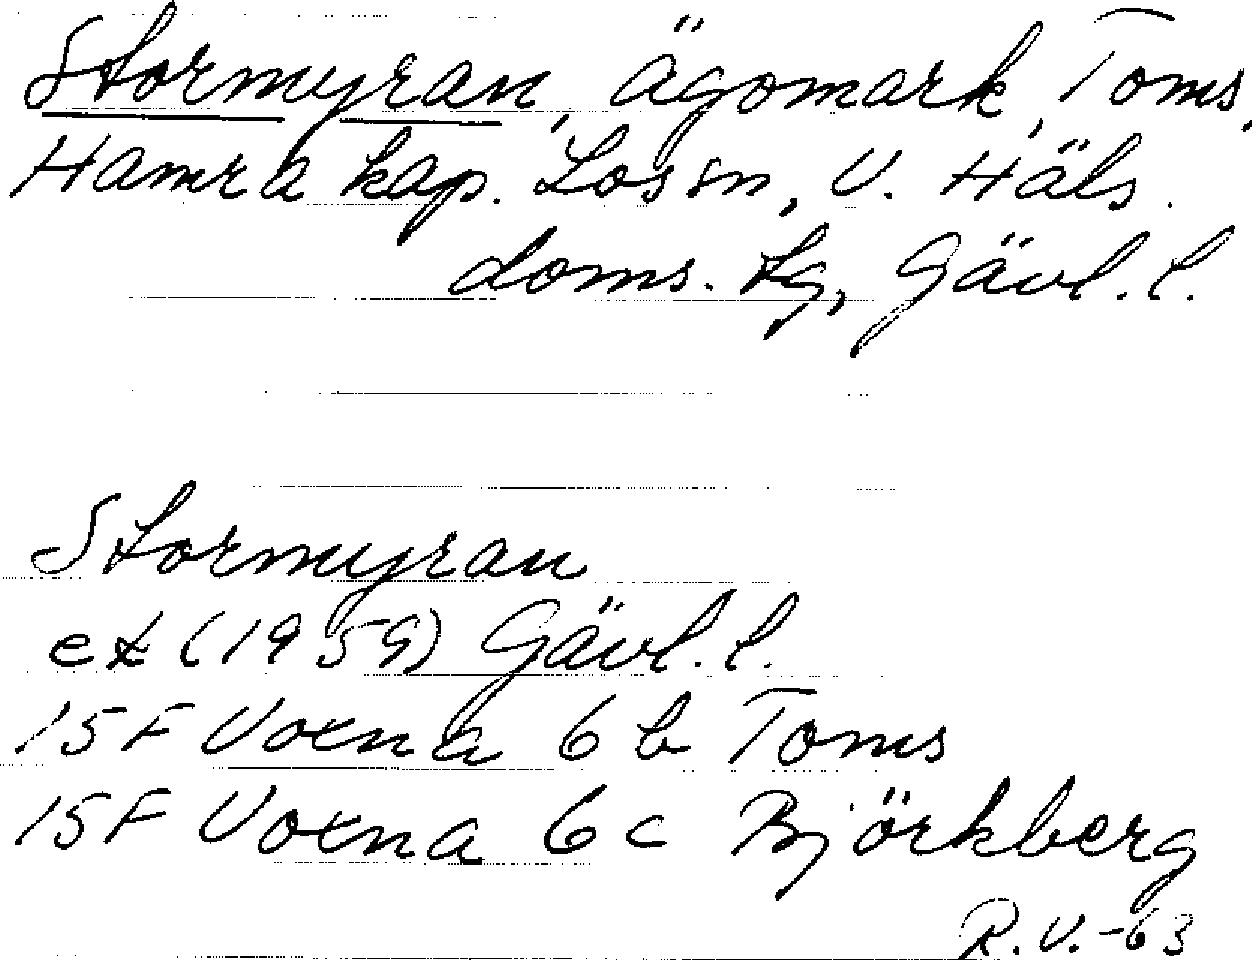 Stormyran, ägomark, Toms,
Hamra kap. Los sn, V. Häls.
doms. tg, Gävl. l.
Stormyran
ek (1959) Gävl. l.
15F Voxna 6 b Toms
15F Voxna 6 c Björkberg
R. V. -63